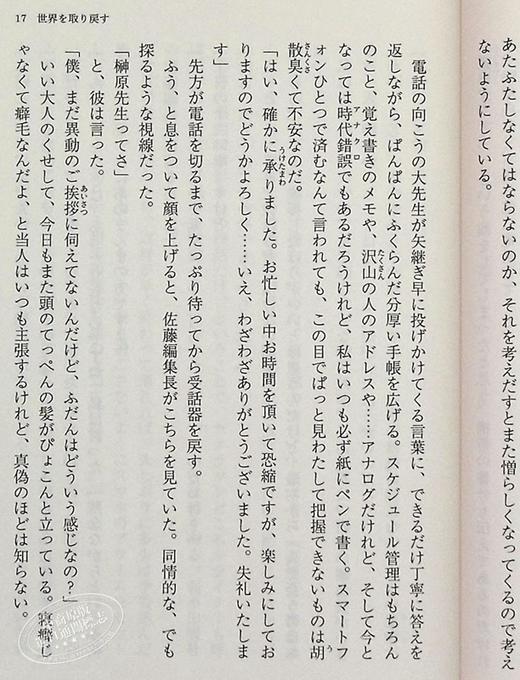 17 世界を取り戻す
あたふたしなくてはならないのか、それを考えだすとまた憎らしくなってくるので考え
ないようにしている。
電話の向こうの大先生が矢継ぎ早に投げかけてくる言葉に、できるだけ丁寧に答えを
返しながら、ぱんぱんにふくらんだ分厚い手帳を広げる。スケジュール管理はもちろん
のこと、覚え書きのメモや、沢山の人のアドレスや……アナログだけれど、そして今と
なっては時代錯誤でもあるだろうけれど、私はいつも必ず紙にペンで書く。スマートフ
ォンひとつで済むなんて言われても、この目でぱっと見わたして把握できないものは胡
散臭くて不安なのだ。
「はい、確かに承りました。お忙しい中お時間を頂いて恐縮ですが、楽しみにしてお
りますのでどうかよろしく……いえ、わざわざありがとうございました。失礼いたしま
す」
先方が電話を切るまで、たっぷり待ってから受話器を戻す。
ふう、と息をついて顔を上げると、佐藤編集長がこちらを見ていた。同情的な、でも
探るような視線だった。
「榊原先生ってさ」
と、彼は言った。
「僕、まだ異動のご挨拶に伺えてないんだけど、ふだんはどういう感じなの？」
いい大人のくせして、今日もまた頭のてっぺんの髪がぴょこんと立っている。寝癖じ
ゃなくて癖毛なんだよ、と当人はいつも主張するけれど、真偽のほどは知らない。